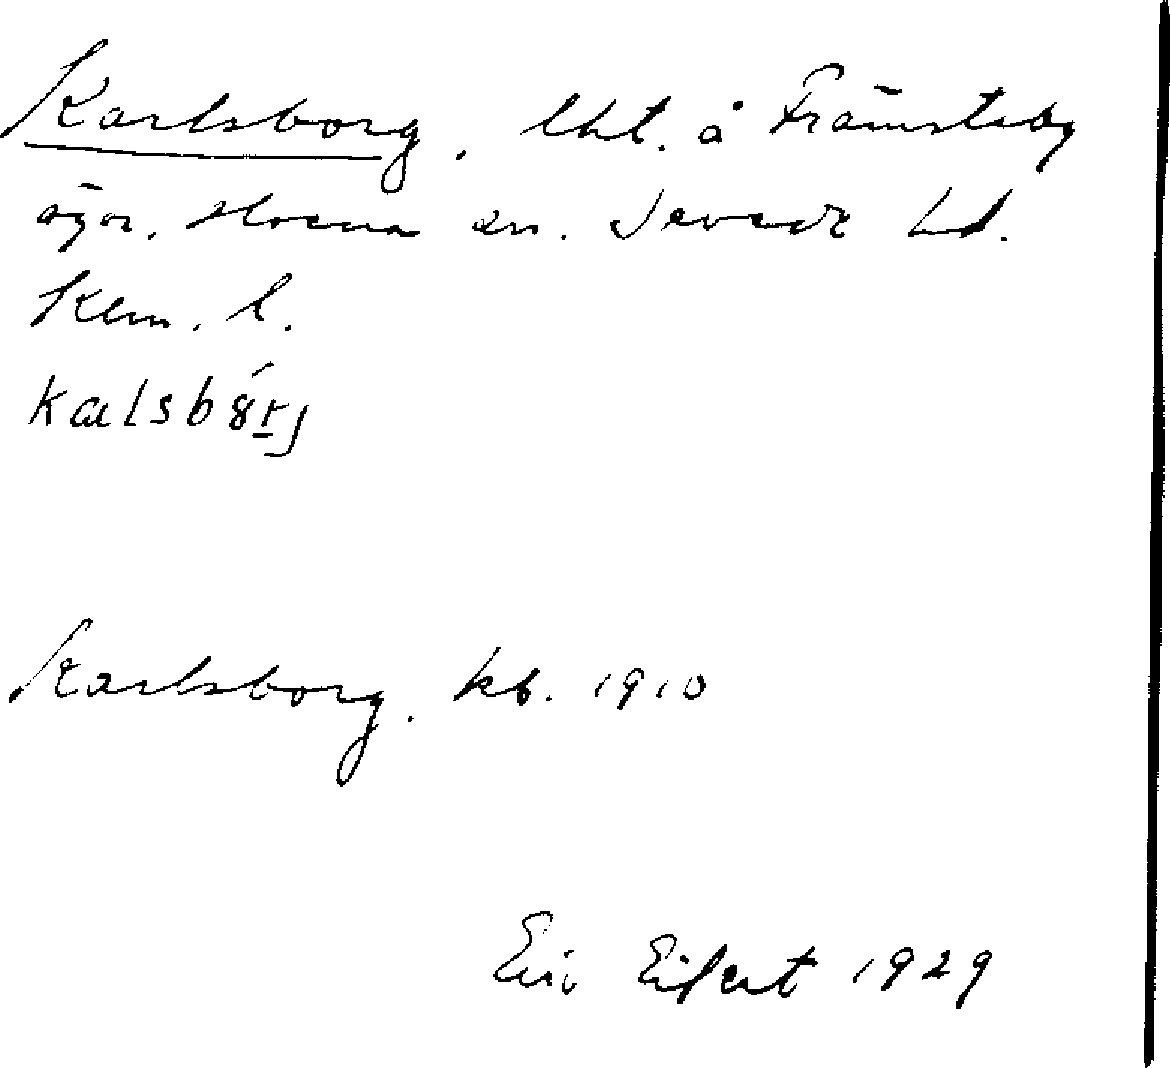 Karlsborg, lht. å Främsteby
ägor, sn. Sevede hd.
Klm. l.
kalsbórj
Karlsborg. kb. 1910
Eric Eifert 1929